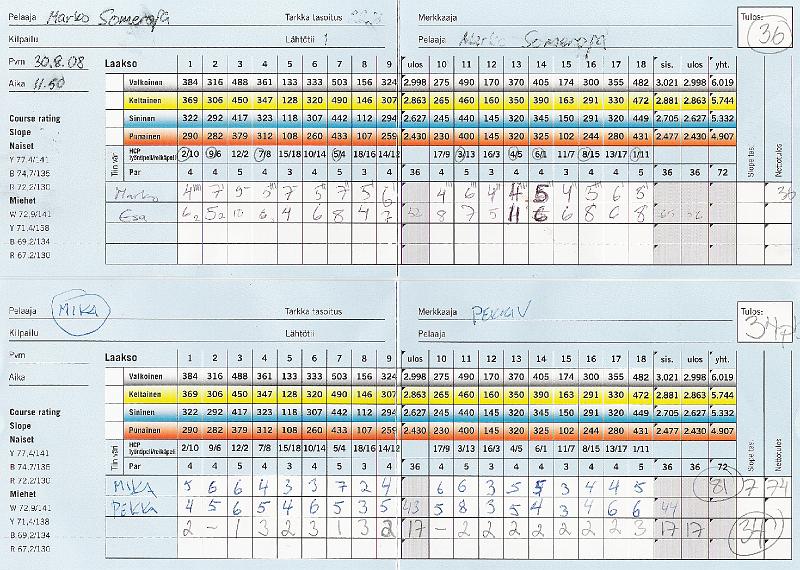 Pelaaja Marko Tarkka tasoitus Merkkaaja Tulos: 36
Kilpailu Lähtötii 1 Pelaaja Marko
Pvm 30.8.08 Laakso 1 2 3 4 5 6 7 8 9 ulos 10 11 12 13 14 15 16 17 18 sis. ulos yht.
Aika 11.50 Valkoinen 384 316 488 361 133 333 503 156 324 2.998 275 490 170 370 405 174 300 355 482 3.021 2.998 6.019
Keltainen 369 306 450 347 128 320 490 146 307 2.863 265 460 160 350 390 163 291 330 472 2.881 2.863 5.744
Course rating Sininen 322 292 417 323 118 307 442 112 294 2.627 245 440 145 320 345 150 291 320 449 2.705 2.627 5.332
Slope Punainen 290 282 379 312 108 260 433 107 259 2.430 230 400 140 320 325 102 244 280 431 2.477 2.430 4.907
Naiset HCP lyöntipeli/reikäpeli 2/10 9/6 12/2 7/8 15/18 10/14 5/4 18/16 14/12 17/9 3/13 16/3 4/5 6/1 11/7 8/15 13/17 1/11 Slope tas. Nettotulos
Y 77,4/141 Tiin väri Par 4 4 5 4 3 4 5 3 4 36 4 5 3 4 4 3 4 4 5 36 36 72
B 74,7/135
R 72,2/130 Marko 4 7 9 5 7 5 7 5 6 4 6 4 4 5 4 5 6 8 36
Miehet
W 72,9/141 Esa 6 5 10 6 4 6 8 4 7 52 8 7 5 4 6 6 8 6 8
Y 71,4/138
B 69,2/134
R 67,2/130
Pelaaja MIKA Tarkka tasoitus Merkkaaja PEKKA V Tulos: 34
Kilpailu Lähtötii Pelaaja
Pvm Laakso 1 2 3 4 5 6 7 8 9 ulos 10 11 12 13 14 15 16 17 18 sis. ulos yht.
Aika Valkoinen 384 316 488 361 133 333 503 156 324 2.998 275 490 170 370 405 174 300 355 482 3.021 2.998 6.019
Keltainen 369 306 450 347 128 320 490 146 307 2.863 265 460 160 350 390 163 291 330 472 2.881 2.863 5.744
Course rating Sininen 322 292 417 323 118 307 442 112 294 2.627 245 440 145 320 345 150 291 320 449 2.705 2.627 5.332
Slope Punainen 290 282 379 312 108 260 433 107 259 2.430 230 400 140 320 325 102 244 280 431 2.477 2.430 4.907
Naiset HCP lyöntipeli/reikäpeli 2/10 9/6 12/2 7/8 15/18 10/14 5/4 18/16 14/12 17/9 3/13 16/3 4/5 6/1 11/7 8/15 13/17 1/11 Slope tas. Nettotulos
Y 77,4/141 Tiin väri Par 4 4 5 4 3 4 5 3 4 36 4 5 3 4 4 3 4 4 5 36 36 72
B 74,7/135
R 72,2/130 MIKA 5 6 6 4 3 3 7 2 4 6 6 3 5 5 3 4 4 5 81 7 74
Miehet
W 72,9/141 PEKKA 4 5 6 5 4 6 5 3 5 43 5 8 3 5 4 3 4 6 6 44
Y 71,4/138 2 - 1 3 2 3 1 3 2 17 - 2 2 2 2 2 2 2 3 17 17 34
B 69,2/134
R 67,2/130